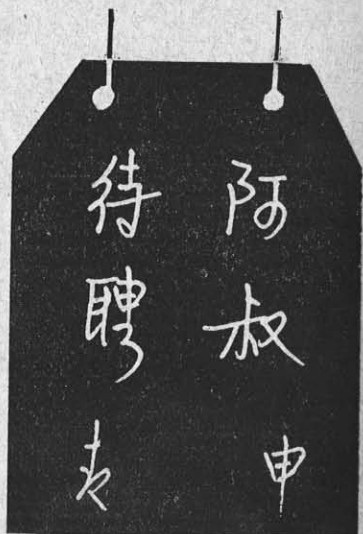 阿叔 申
待聘